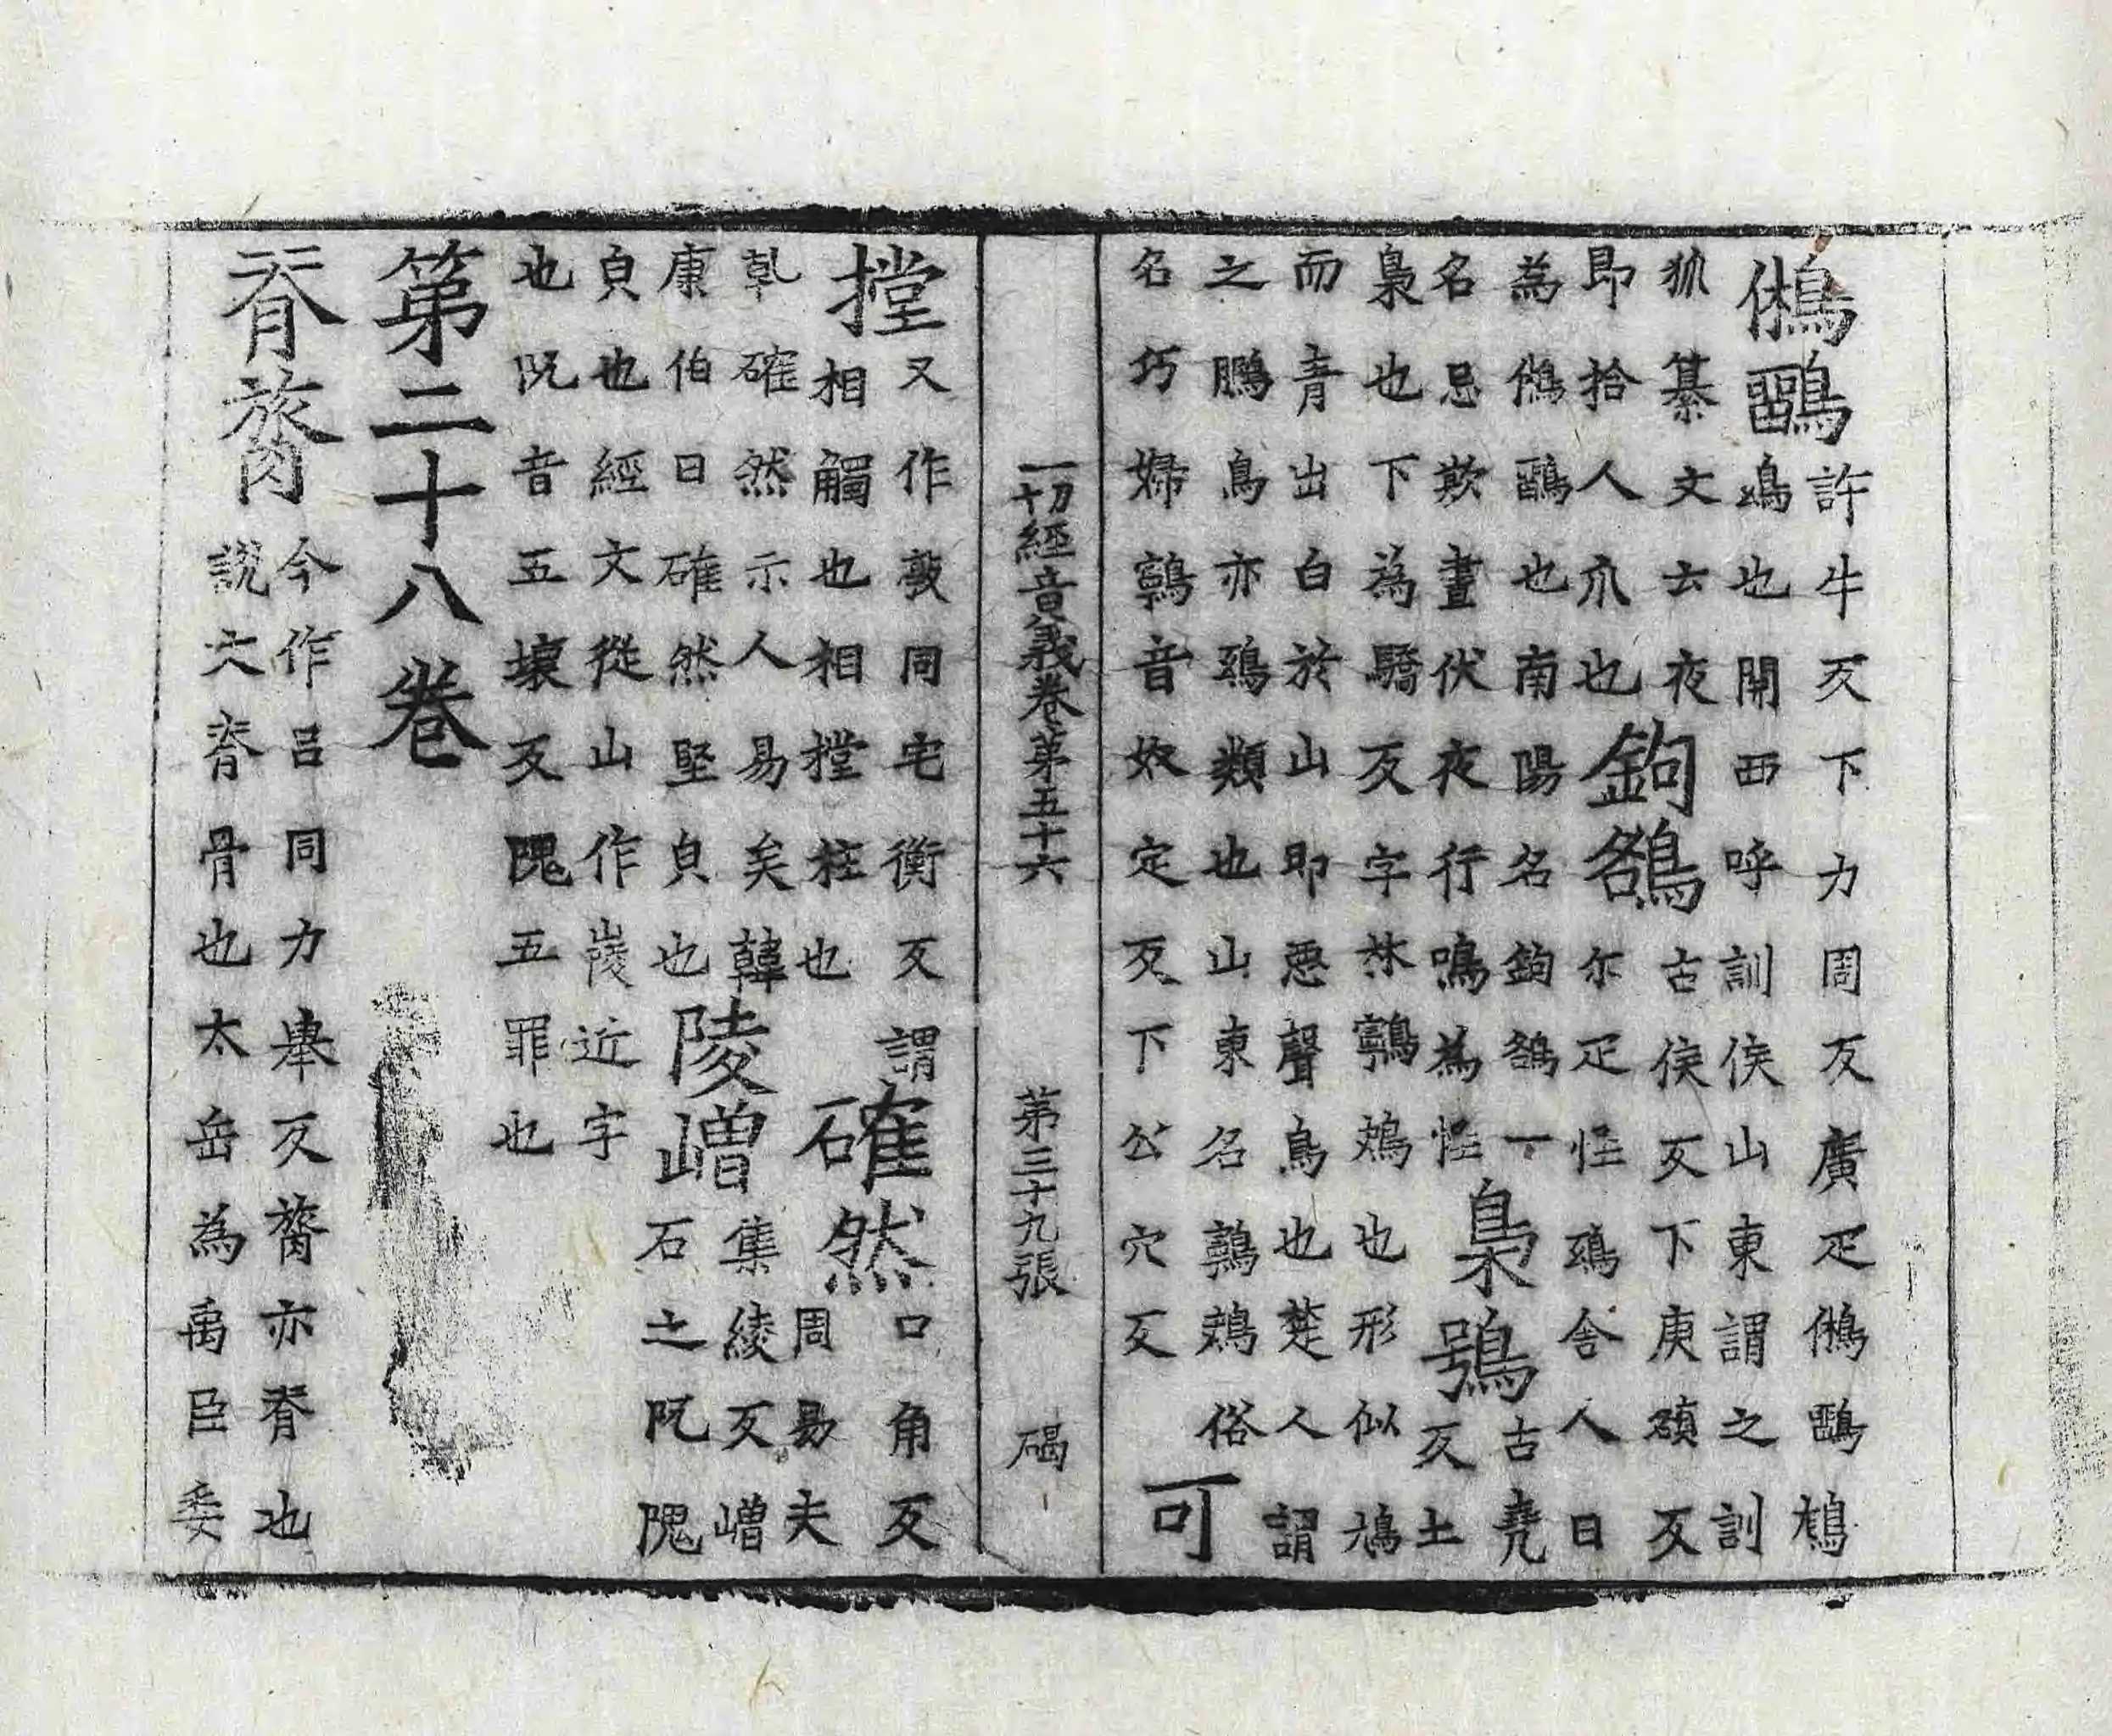 鵂鶹許牛反下力周反廣疋鵂鶹鵄鳩也開西呼訓侯山東謂之訓
狐纂文云夜即拾人爪也鉤鵅古侯反下庚額反尒疋怪鵄舍人曰
為鵂鶹也南陽名鉤鵅一名忌欺晝伏夜行鳴為怪梟鴞古堯反土
梟也下為驕反字林鸋鴂也形似鳩而青出白於山即惡聲鳥也楚人謂
之鵩鳥亦鵄類也山東名鸋鴂俗名巧婦鸋音奴定反下公穴反可
一切經音義卷第五十六 第三十九張 碣
摚又作㲂同宅衡反謂相觸也相摚柱也確然口角反周易夫
乹確然示人易矣韓康伯曰確然堅貞也陵嶒集綾反嶒石之阢隗
貞也經文從山作崚近字也阢音五壞反隗五罪也
第二十八卷
脊膂今作呂同力舉反膂亦脊也說文脊骨也太岳為禹臣委